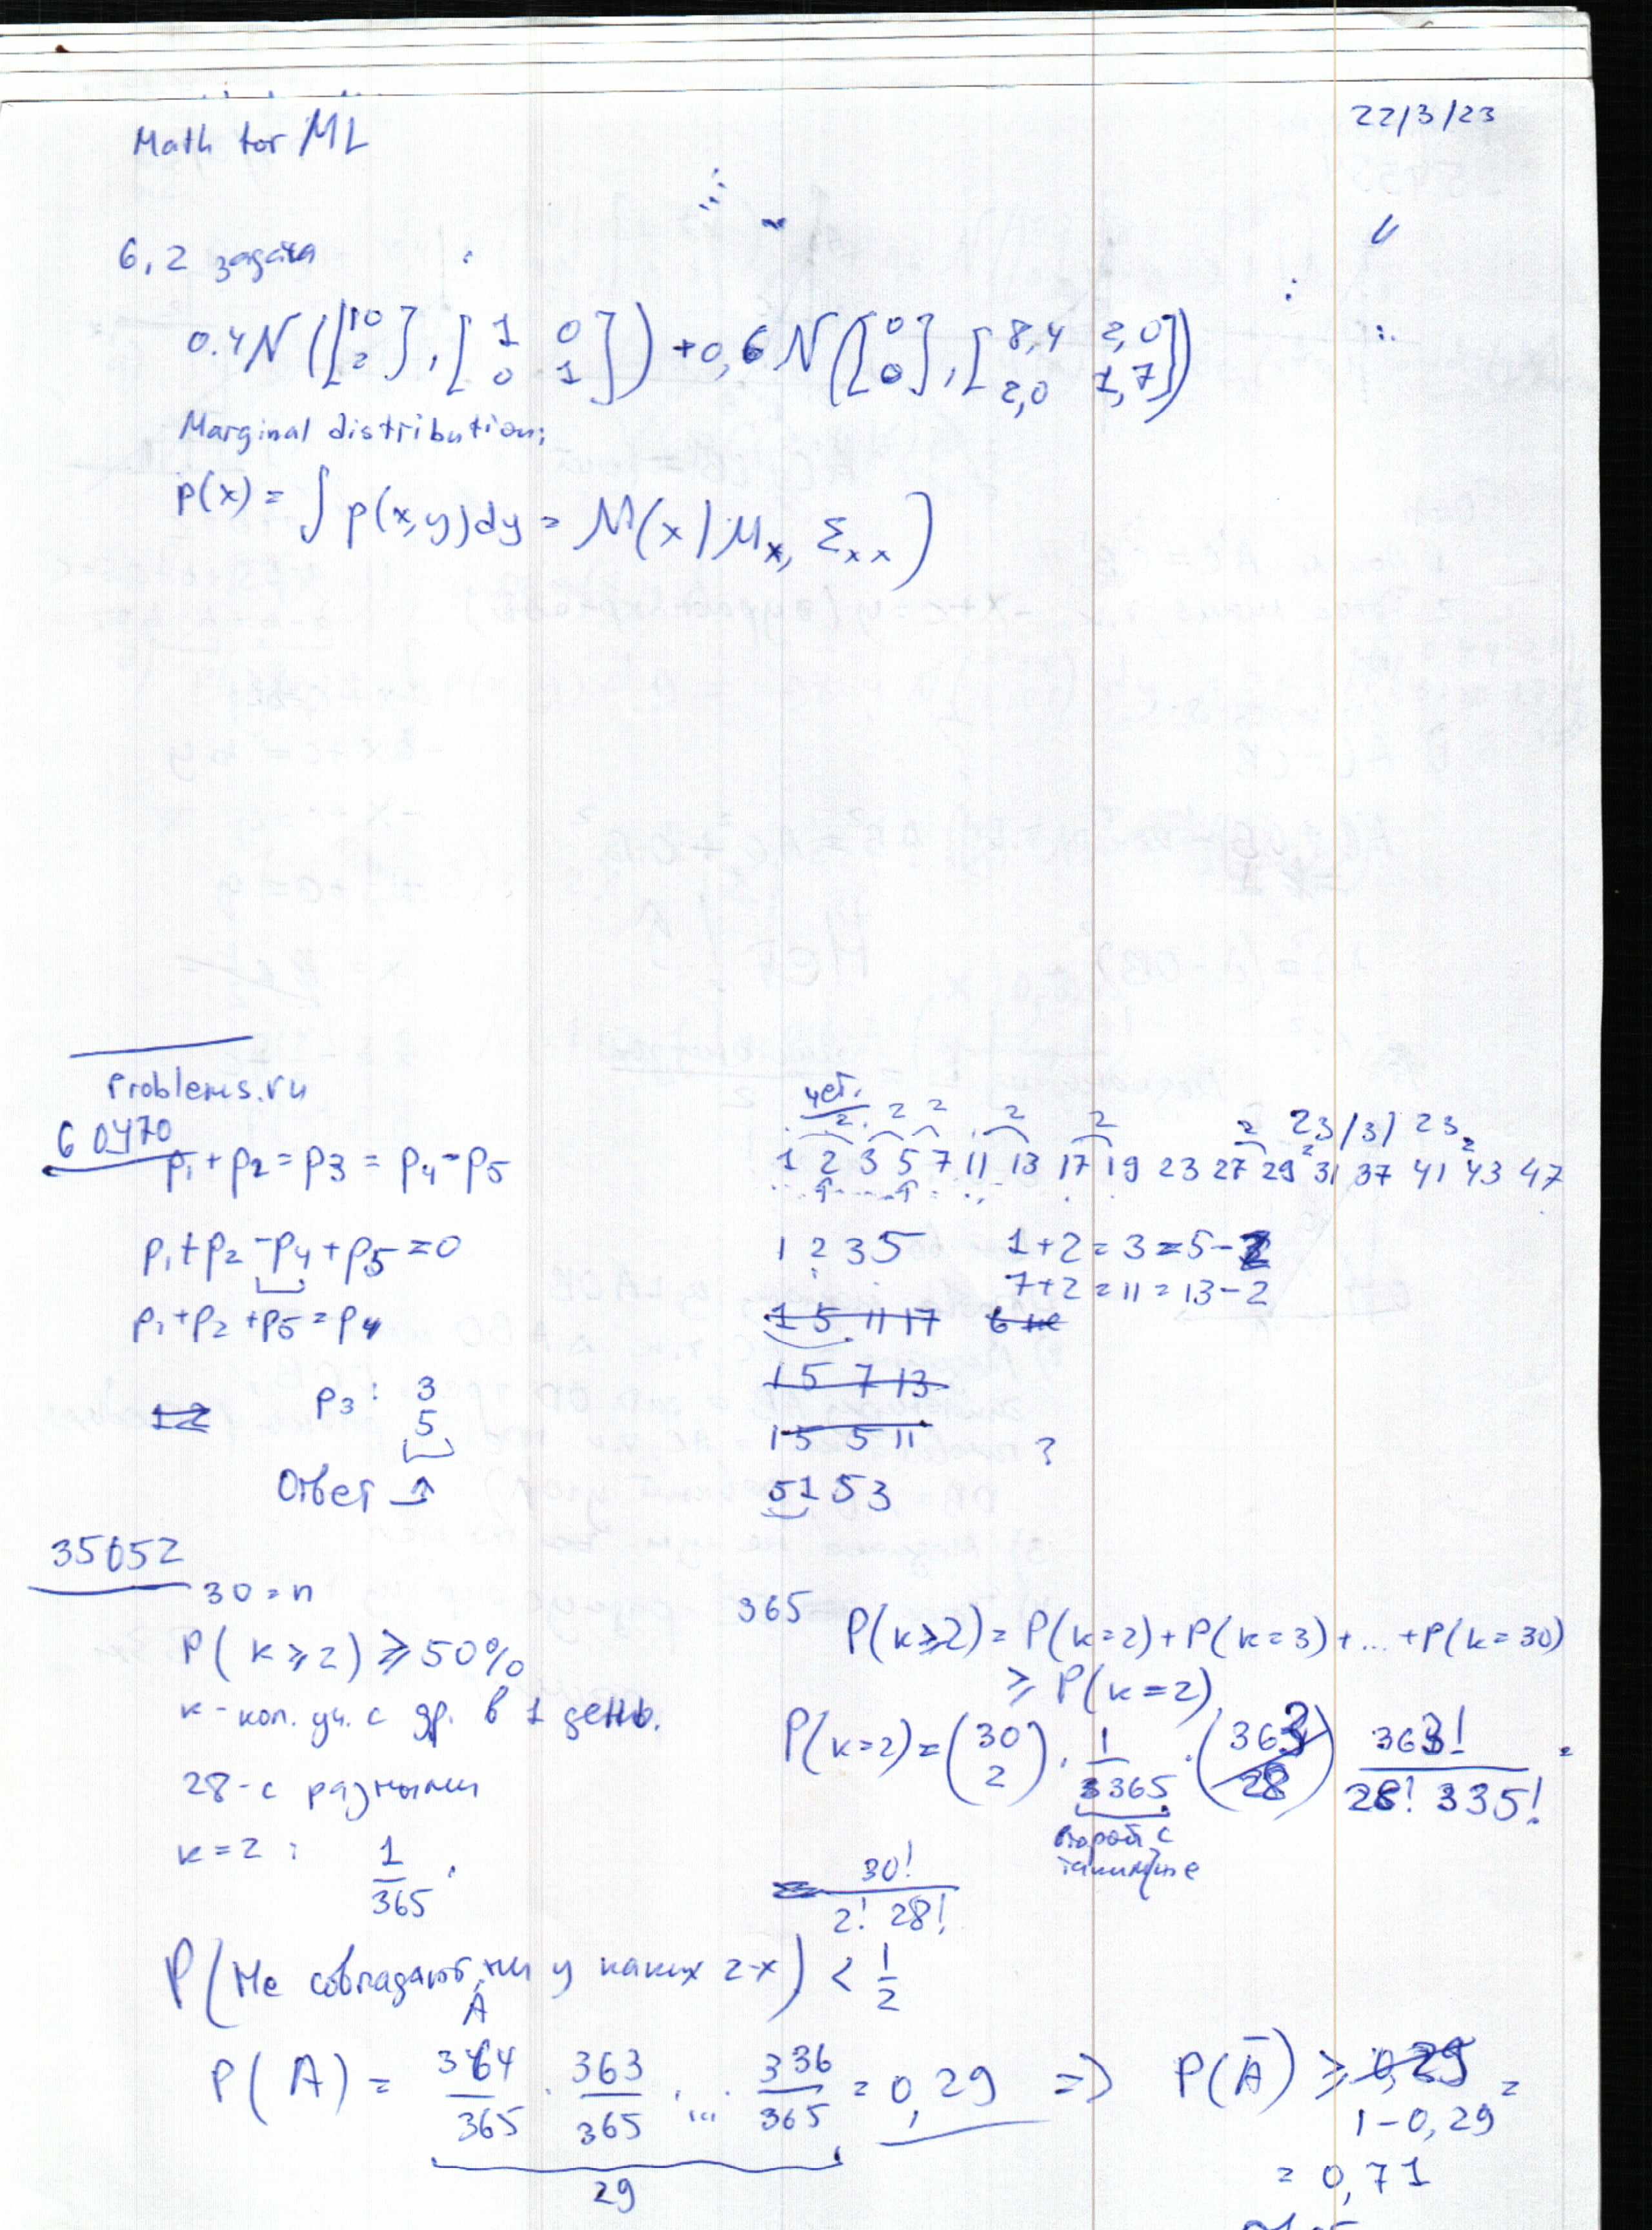 Math for ML
22/3/23
6,2 задача
0.4 N([10 2], [1 0 0 1]) + 0,6 N([0 0], [8,4 2,0 2,0 1,7])
Marginal distribution:
p(x) = ∫ p(x,y)dy = N(x | μx, Σxx)
Problems.ru
60470
p1 + p2 = p3 = p4 - p5
p1 + p2 - p4 + p5 = 0
p1 + p2 + p5 = p4
12
p3: 3
5
Ответ
чет.
23/3/23
2 2 2 2 2 2 2 2
1 2 3 5 7 11 13 17 19 23 27 29 31 37 41 43 47
1 2 3 5 1+2=3=5-2
7+2=11=13-2
1 5 11 17
1 5 7 13
1 5 5 11 ?
51 53
35052
30 = n
P(k ≥ 2) ≥ 50%
к - кол. уч. с др. в 1 день.
28 - с разными
k=2: 1/365 ·
365 P(k≥2) = P(k=2) + P(k=3) + ... + P(k=30)
≥ P(k=2)
P(k=2) = (30 2) · 1/365 · (363 28) 363!/28! 335! =
второй с
таким же
= 30!/2! 28!
P(Не совпадают ни у каких 2-х) < 1/2
A
P(A) = 364/365 · 363/365 · ... · 336/365 = 0,29 => P(Ā) ≥ 0,29 =
1-0,29
29
= 0,71